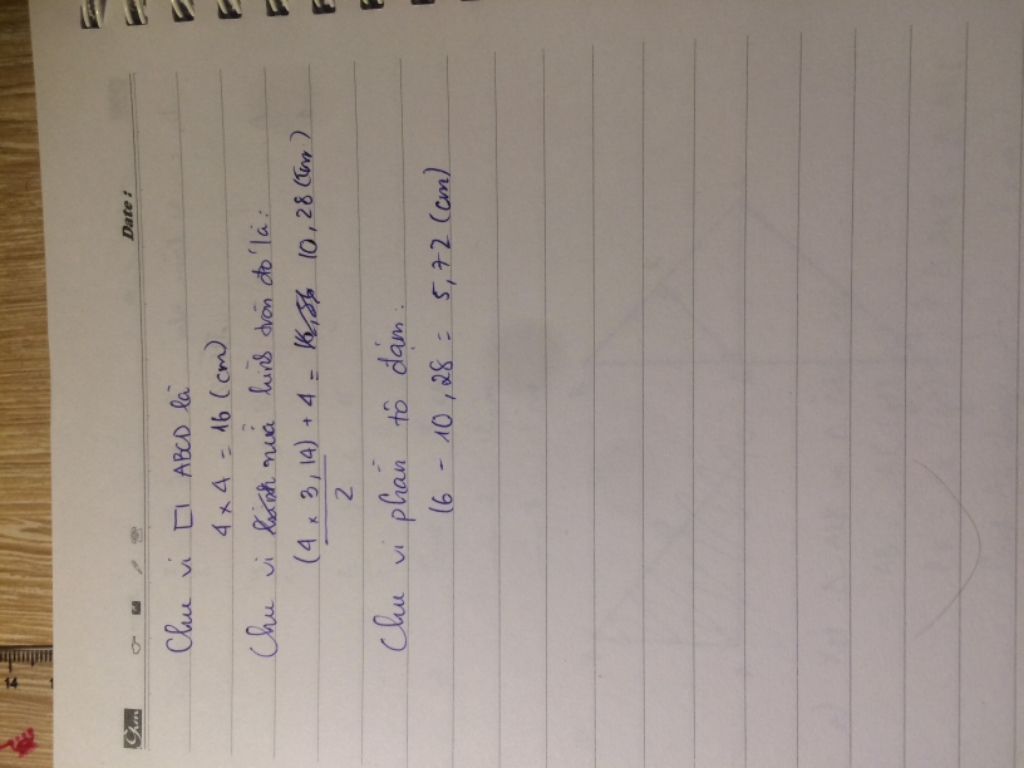 Date:
Chu vi □ ABCD là
4 × 4 = 16 (cm)
Chu vi nửa hình tròn đó là:
(4 × 3,14) + 4 = 10,28 (cm)
2
Chu vi phần tô đậm:
16 - 10,28 = 5,72 (cm)
14